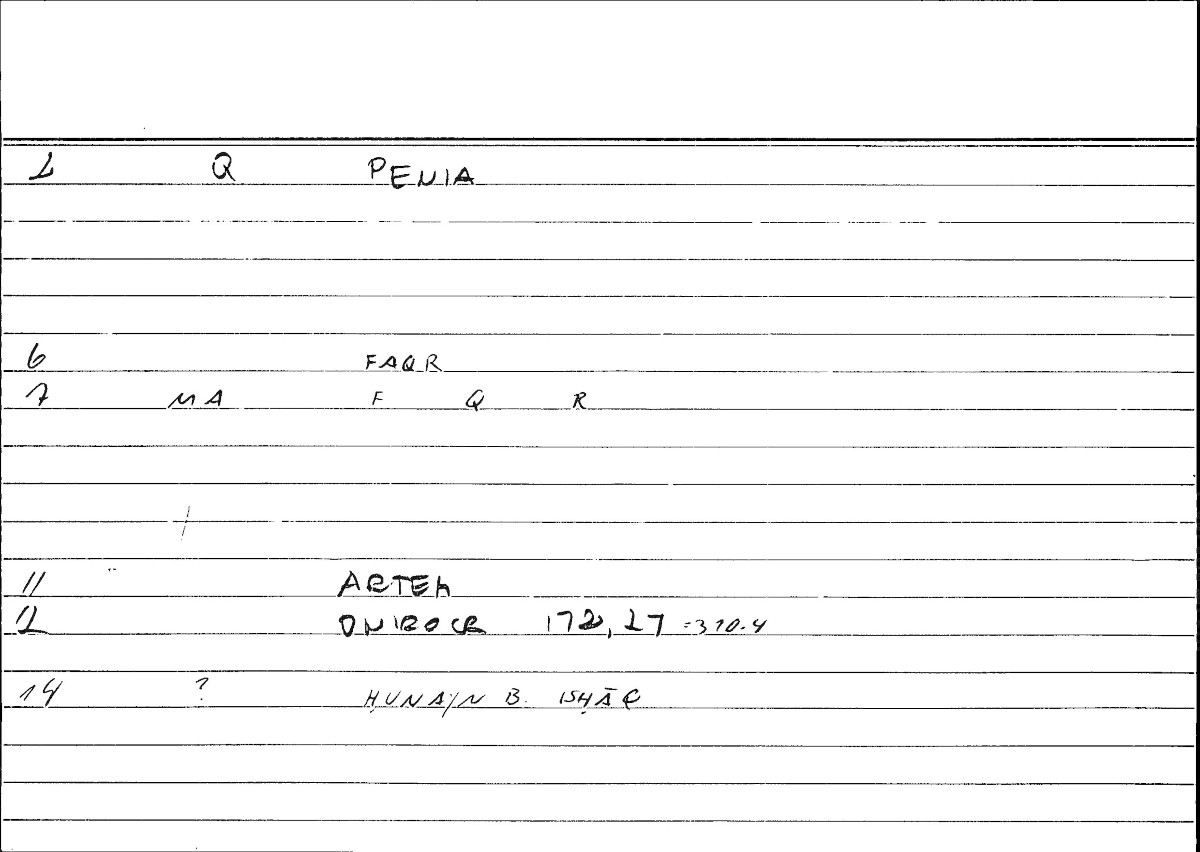 2 Q PENIA
6 FAQR
7 MA F Q R
11 ARTEM
12 ONIROCR 172, 27 =310.4
14 ? ḤUNAYN B. ISḤĀQ